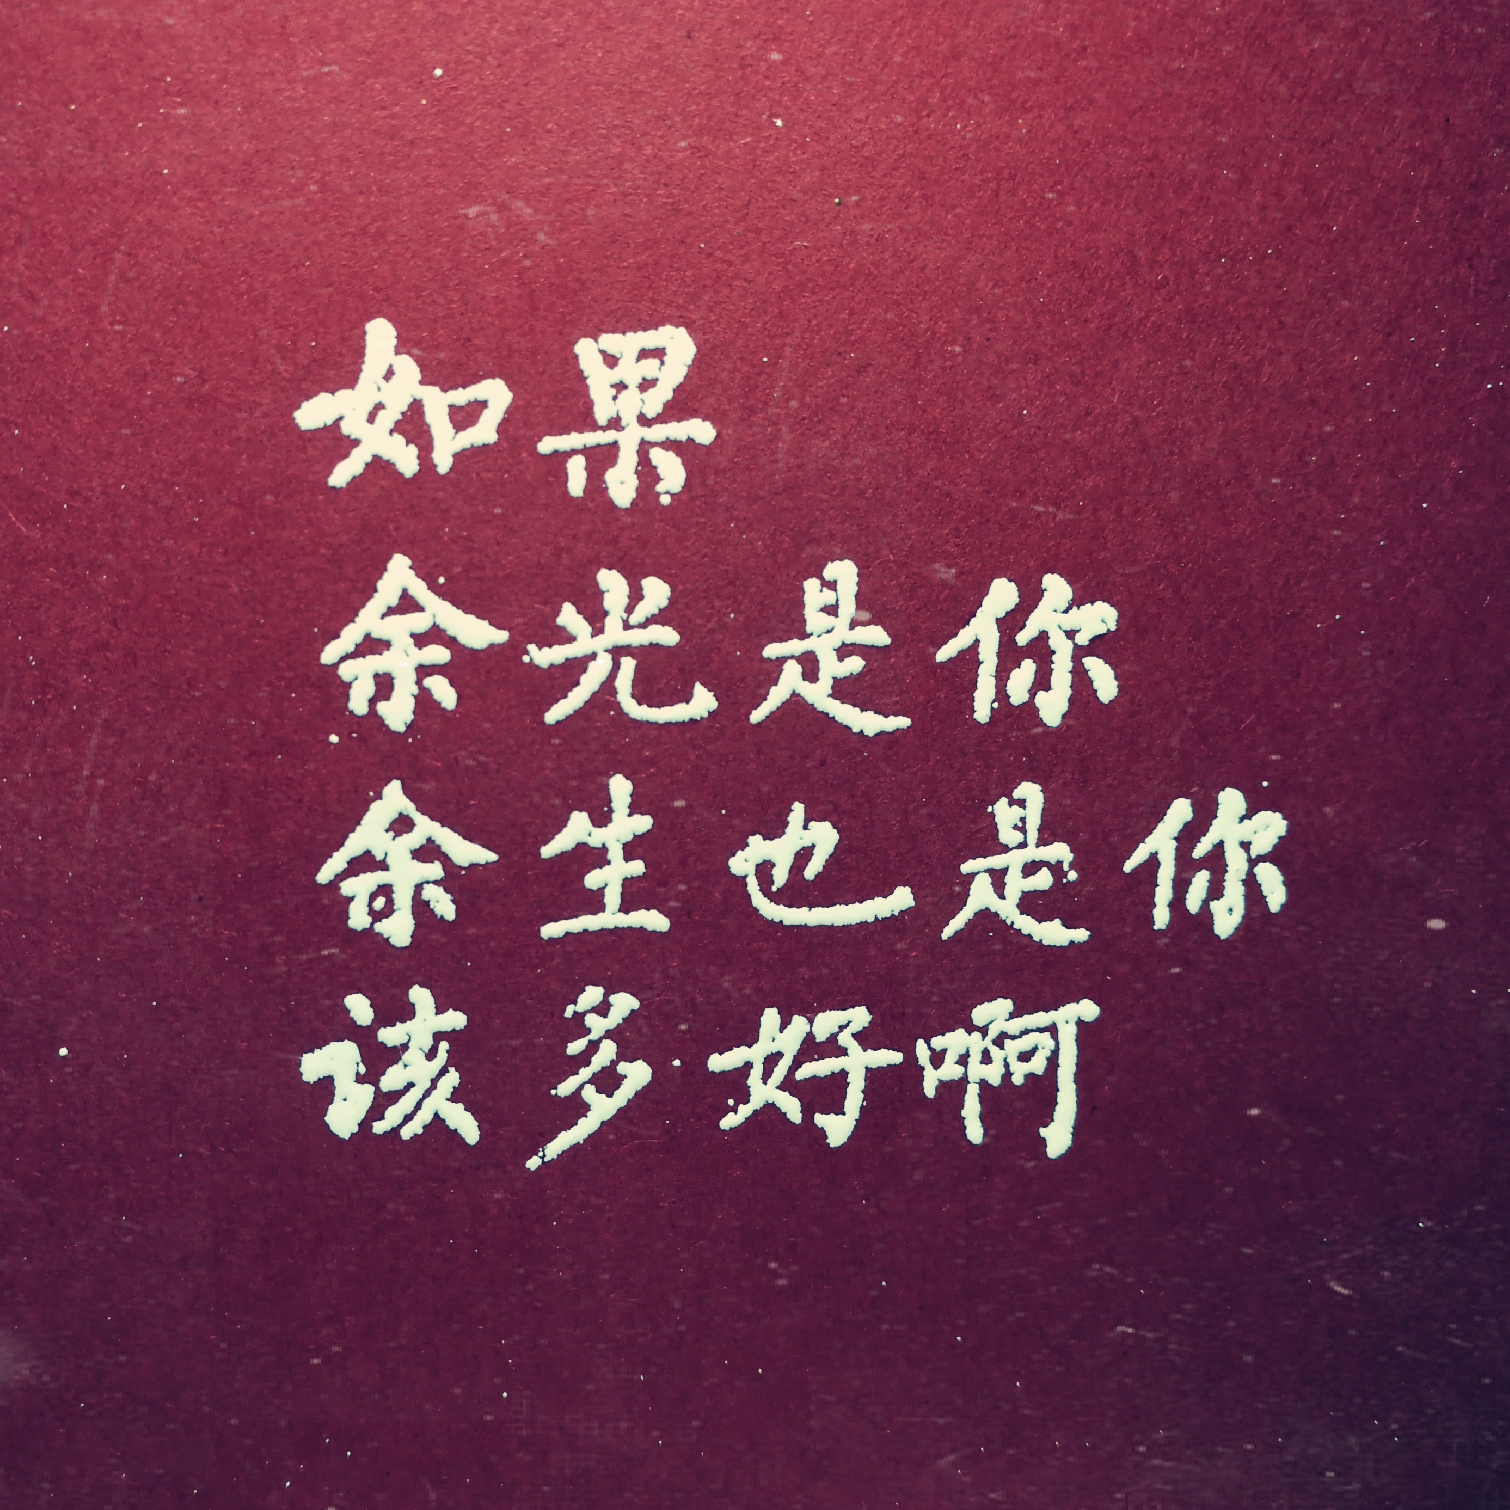 如果
余光是你
余生也是你
该多好啊